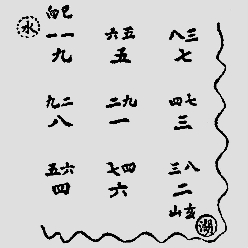 向巳
水 一一 六五 八三
九 五 七
九二 二九 四七
八 一 三
五六 七四 三八
四 六 二
山亥
湖